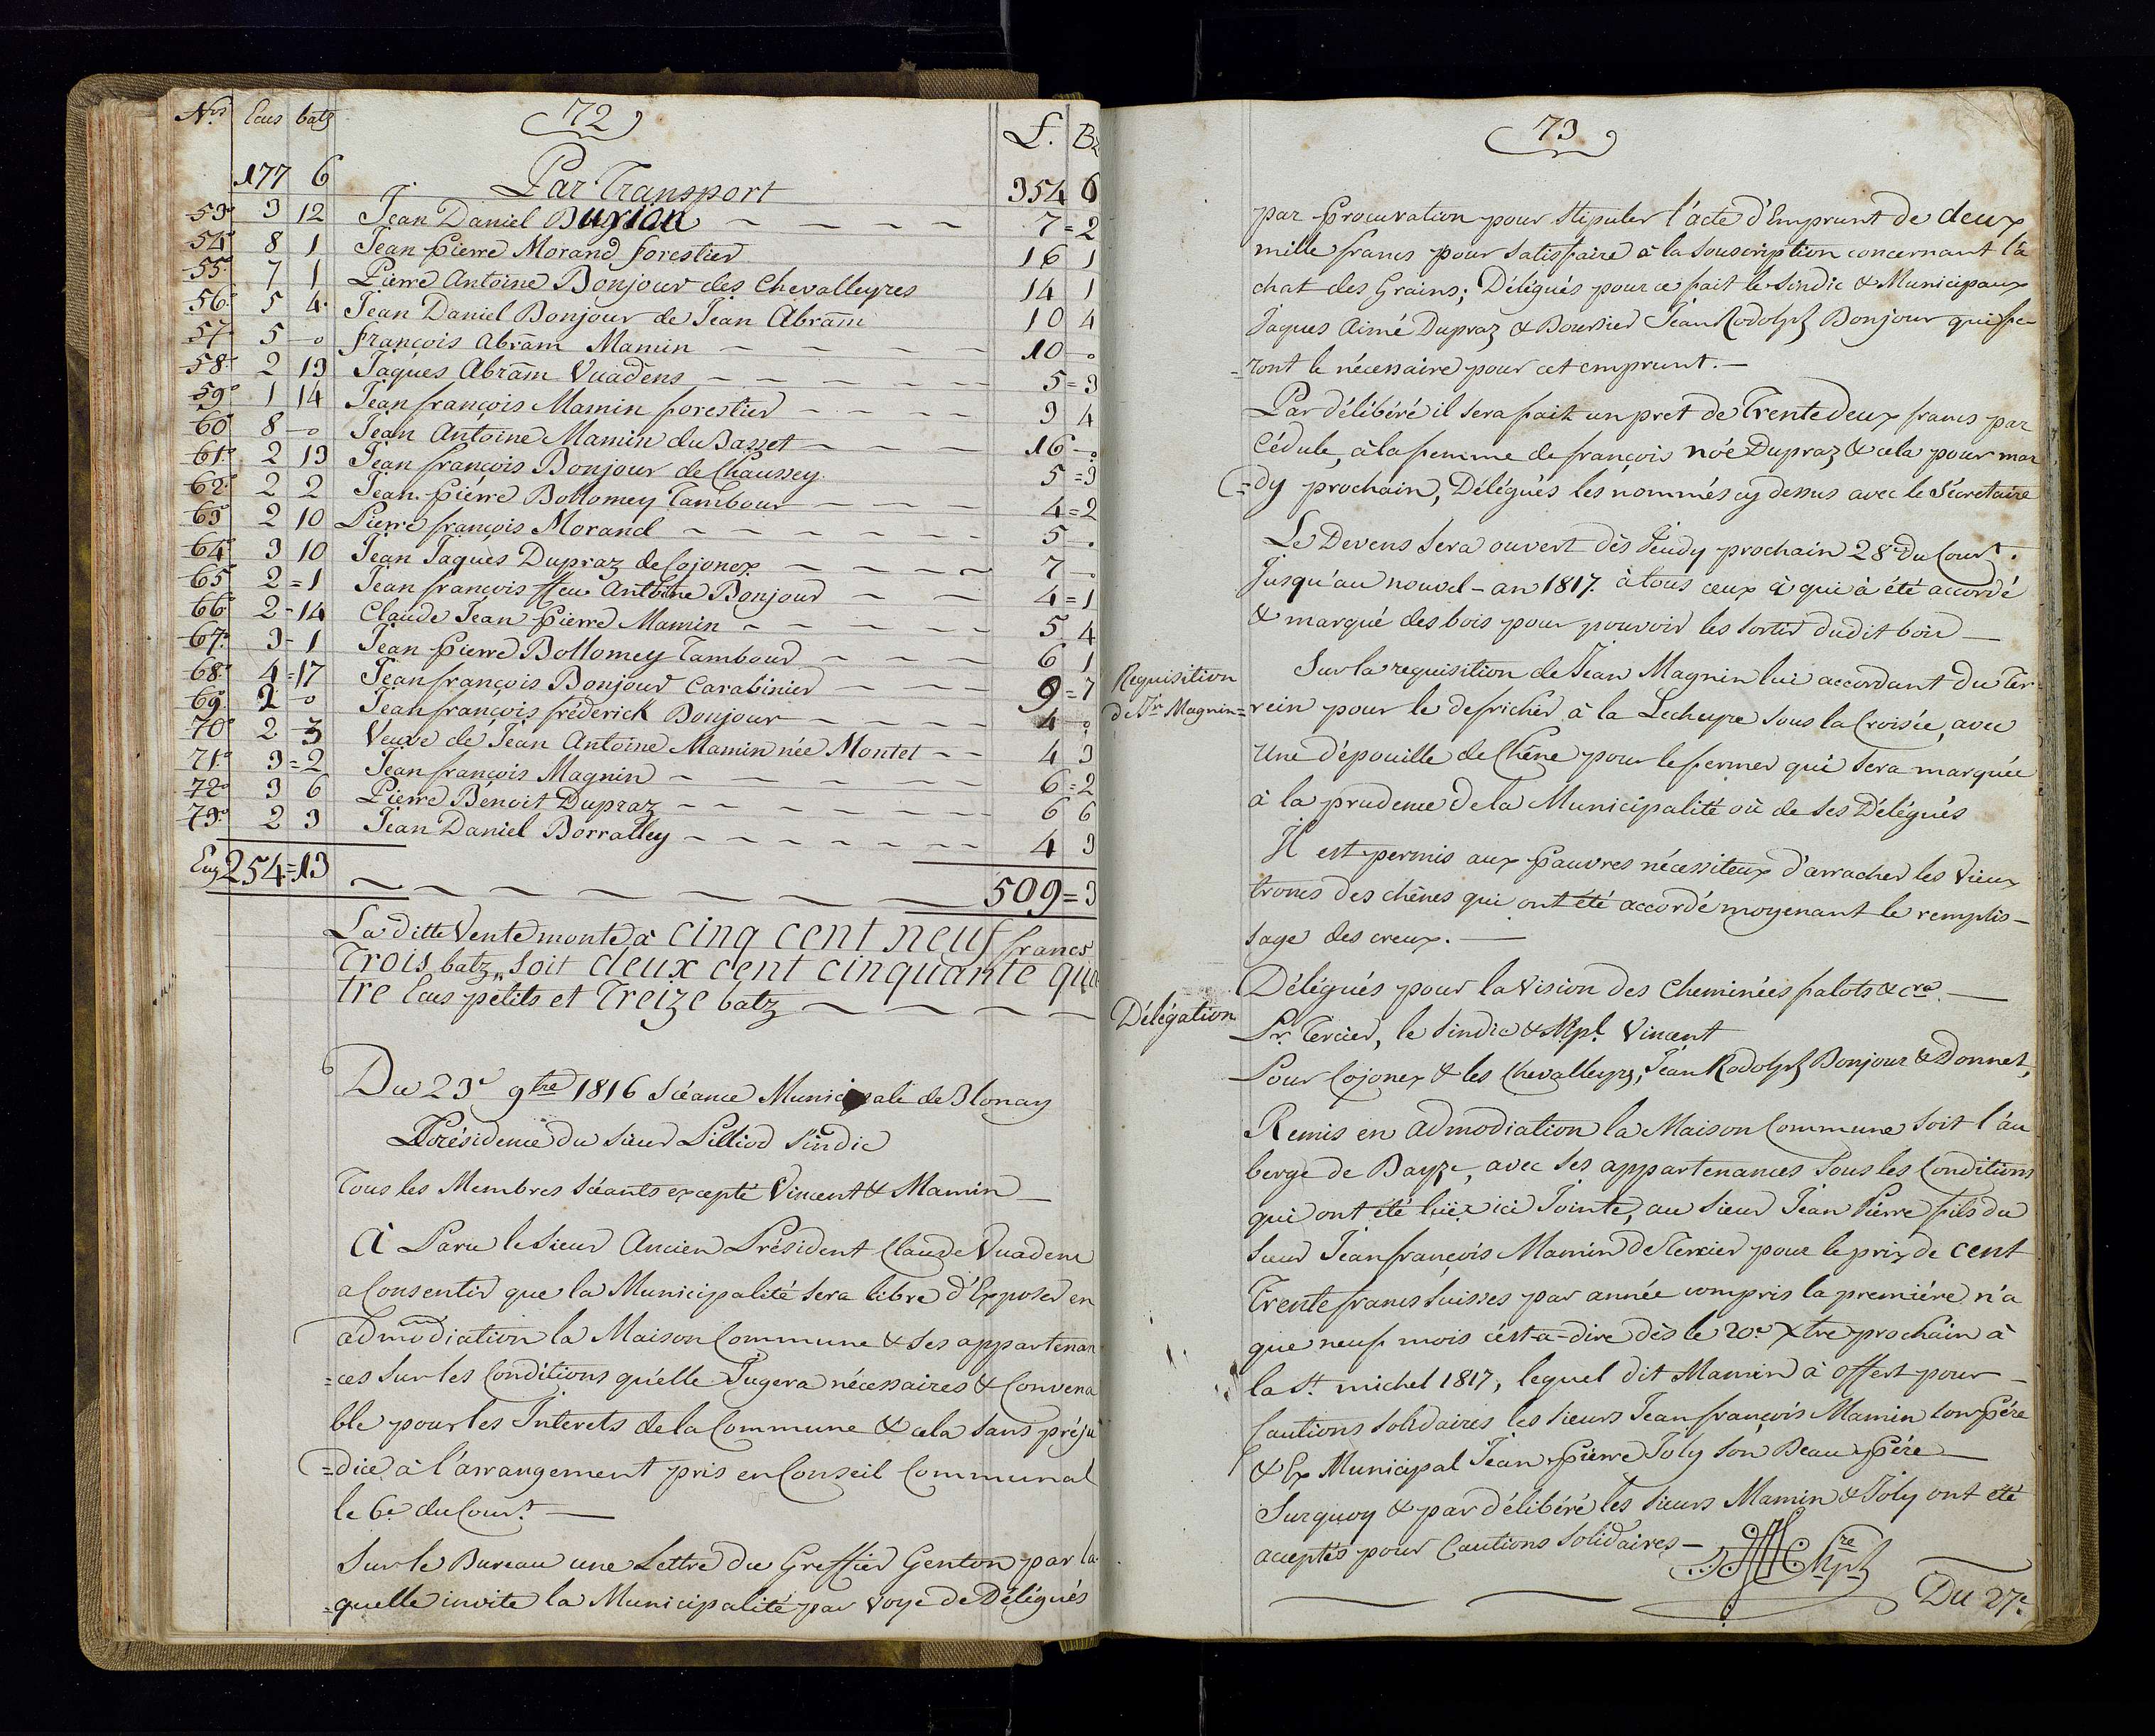 N.os Ecus batz 72 L. Bz
177 6 Par Transport 354 6
53e 3 12 Jean Daniel Buxian 7=2
54e 8 1 Jean Pierre Morand forestier 16 1
55e 7 1 Pierre Antoine Bonjour des Chevalleyres 14 1
56e 5 4 Jean Daniel Bonjour de Jean Abram 10 4
57e 5 0 françois Abram Mamin 10 0
58e 2 13 Jaques Abram Vuadens 5=3
59e 1 14 Jean françois Mamin forestier 3 4
60e 8 0 Jean Antoine Mamin du Basset 16 0
61e 2 13 Jean françois Bonjour de Chaussey 5=3
62e 2 2 Jean Pierre Bottomey Tambour 4=2
63 2 10 Pierre françois Morand 5
64e 3 10 Jean Jaques Dupraz de Cojonex 7
65 2=1 Jean françois ffeu Antoine Bonjour 4=1
66 2-14 Claude Jean Pierre Mamin 5 4
67e 3-1 Jean Pierre Bottomey Tambour 6 1
68e 4=17 Jean françois Bonjour Carabinier 9=7
69e 2 0 Jean françois fréderick Bonjour 4 0
70e 2 3 Veuve de Jean Antoine Mamin née Montet 4 3
71e 3=2 Jean françois Magnin 6=2
72e 3 6 Pierre Bénoit Dupraz 6 6
73e 2 3 Jean Daniel Borralley 4 3
254=13 509=3
La ditte Vente monte à cinq cent neuf francs
Trois batz, soit deux cent cinquante qua
tre Ecus petits et Treize batz
Du 23e 9bre 1816 Séance Municipale de Blonay
Présidence du Sieur Pilliod Sindic
Tous les Membres séants excepté Vincent & Mamin
A Paru le Sieur Ancien Président Claude Vuadens
a Consentir que la Municipalité sera libre d'Exposer en
admodiation la Maison Commune & ses appartenan
=ces sur les Conditions qu'elle Jugera nécessaires & Convena
ble pour les Interets de la Commune & cela sans préju
=dice à l'arrangement pris en Conseil Communal
le 6e du Court.
Sur le Bureau une Lettre du Greffier Genton par la
=quelle invite la Municipalité par voye de Délégués
73
par Procuration pour stipuler l'acte d'Emprunt de deux
mille francs pour satisfaire à la souscription concernant l'a
chat des Grains; Délégués pour ce fait le Sindic & Municipaux
Jaques Aimé Dupraz & Boursier Jean Rodolph Bonjour qui fe
=ront le nécessaire pour cet emprunt.
Par délibéré il sera fait un pret de Trente deux francs par
Cédule, à la femme de françois noé Dupraz & cela pour mar
=dy prochain, Délégués les nommés cy dessus avec le Sécretaire
Le Devens sera ouvert dès Jeudy prochain 28e du Court.
Jusqu'au nouvel-an 1817. à tous ceux à qui à été accordé
& marqué des bois pour pouvoir les sortir dudit bois
Requisition
de Jn Magnin
Sur la requisition de Jean Magnin lui accordant du Ter-
=rein pour le defricher à la Lecheyre sous la Croisée, avec
une dépouille de Chêne pour le fermer qui sera marquée
à la prudence de la Municipalité où de ses Délégués
Il est permis aux Pauvres nécessiteux d'arracher les Vieux
troncs des chênes qui ont été accordé moyenant le remplis-
sage des creux.
Délégation
Délégués pour la Vision des Cheminées falots & cra.
Pr. Tercier, le Sindic & Mpl. Vincent
Pour Cojonex & les Chevalleyrs, Jean Rodolph Bonjour & Donnet,
Remis en admodiation la Maison Commune soit l'au
berge de Bayze, avec ses appartenances sous les Conditions
qui ont été luës ici Jointe, au Sieur Jean Pierre fils du
Sieur Jean françois Mamin de Tercier pour le prix de cent
Trente francs Suisses par année compris la première n'a
que neuf mois c'ést-a-dire dès le 20e Xbre prochain à
la St. michel 1817, lequel dit Mamin à offert pour
Cautions solidaires les Sieurs Jean françois Mamin son Pére
& Ex Municipal Jean Pierre Joly Son Beau Pére
Surquoy & par délibéré les Sieurs Mamin & Joly ont été
aceptés pour Cautions Solidaires
Du 27e